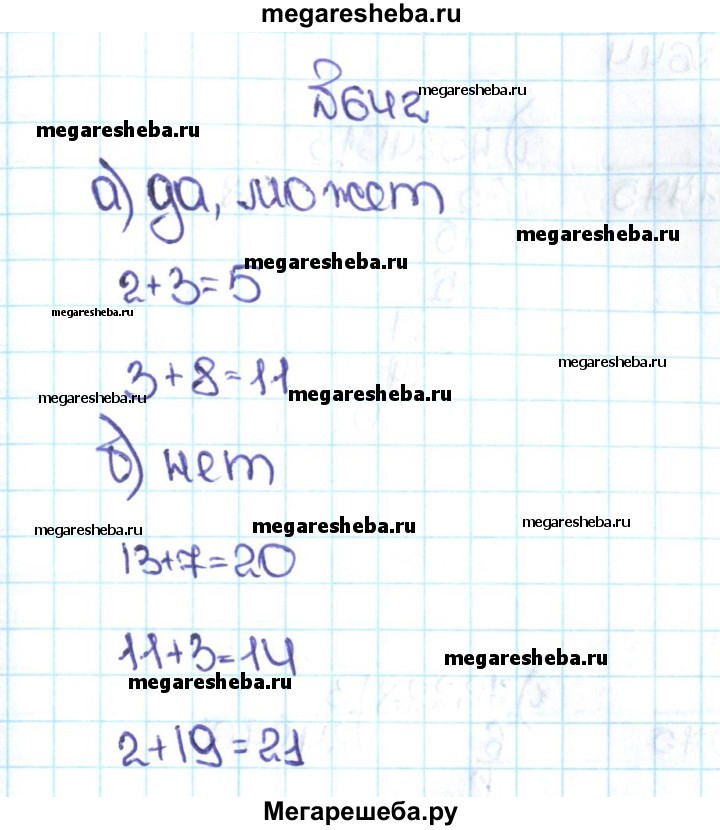 megaresheba.ru
№642
megaresheba.ru
megaresheba.ru
а) да, может
megaresheba.ru
megaresheba.ru
2+3=5
megaresheba.ru
megaresheba.ru
3+8=11
megaresheba.ru
megaresheba.ru
б) нет
megaresheba.ru
megaresheba.ru
megaresheba.ru
13+7=20
11+3=14
megaresheba.ru
megaresheba.ru
2+19=21
Мегарешеба.ру